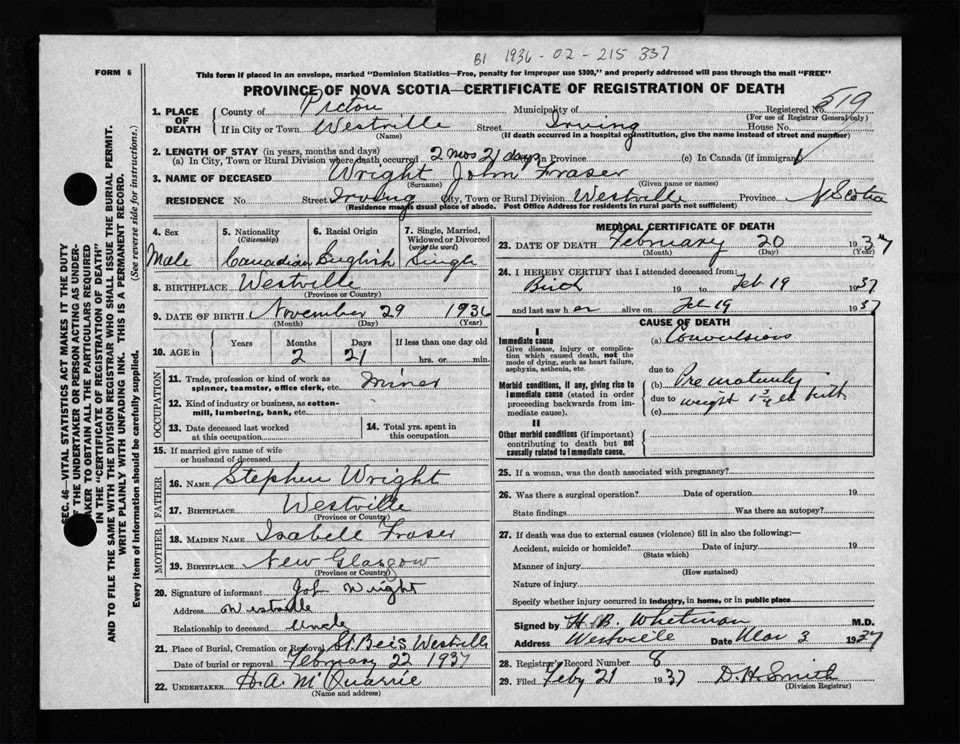 B1 1936 - 02 - 215 337
FORM 6
This form if placed in an envelope, marked "Dominion Statistics—Free, penalty for improper use $300," and properly addressed will pass through the mail "FREE"
PROVINCE OF NOVA SCOTIA—CERTIFICATE OF REGISTRATION OF DEATH
1. PLACE OF DEATH County of Pictou Municipality of Registered No. 519
(For use of Registrar General only)
If in City or Town Westville Street Irving House No.
(Name) (If death occurred in a hospital or institution, give the name instead of street and number)
2. LENGTH OF STAY (in years, months and days)
(a) In City, Town or Rural Division where death occurred 2 mos 21 days In Province (c) In Canada (if immigrant)
3. NAME OF DECEASED Wright John Fraser
(Surname) (Given name or names)
RESIDENCE No. Street Irving City, Town or Rural Division Westville Province N Scotia
(Residence means usual place of abode. Post Office Address for residents in rural parts not sufficient)
4. Sex Male
5. Nationality (Citizenship) Canadian
6. Racial Origin English
7. Single, Married, Widowed or Divorced (write the word) Single
8. BIRTHPLACE Westville
(Province or Country)
9. DATE OF BIRTH November 29 1936
(Month) (Day) (Year)
10. AGE in Years Months Days If less than one day old
2 21 hrs. or min.
OCCUPATION
11. Trade, profession or kind of work as spinner, teamster, office clerk, etc. Miner
12. Kind of industry or business, as cotton-mill, lumbering, bank, etc.
13. Date deceased last worked at this occupation
14. Total yrs. spent in this occupation
15. If married give name of wife or husband of deceased
FATHER
16. NAME Stephen Wright
17. BIRTHPLACE Westville
(Province or Country)
MOTHER
18. MAIDEN NAME Isabell Fraser
19. BIRTHPLACE New Glasgow
(Province or Country)
20. Signature of informant John Wright
Address Westville
Relationship to deceased Uncle
21. Place of Burial, Cremation or Removal Westville
Date of burial or removal February 22 1937
22. UNDERTAKER D. A. McQuarrie
(Name and address)
MEDICAL CERTIFICATE OF DEATH
23. DATE OF DEATH February 20 1937
(Month) (Day) (Year)
24. I HEREBY CERTIFY that I attended deceased from:
Birth 19 to Feb 19 1937
and last saw h er alive on Feb 19 1937
CAUSE OF DEATH
I
Immediate cause
Give disease, injury or complication which caused death, not the mode of dying, such as heart failure, asphyxia, asthenia, etc.
(a) Convulsions
due to
Morbid conditions, if any, giving rise to immediate cause (stated in order proceeding backwards from immediate cause).
(b) Prematurity
due to weight 1 3/4 at birth
(c)
II
Other morbid conditions (if important) contributing to death but not causally related to immediate cause.
25. If a woman, was the death associated with pregnancy?
26. Was there a surgical operation? Date of operation 19
State findings Was there an autopsy?
27. If death was due to external causes (violence) fill in also the following:—
Accident, suicide or homicide? Date of injury 19
(State which)
Manner of injury
(How sustained)
Nature of injury
Specify whether injury occurred in industry, in home, or in public place
Signed by H. B. Whitman M.D.
Address Westville Date Mar 3 1937
28. Registrar's Record Number 8
29. Filed Feby 21 1937 D. H. Smith
(Division Registrar)
SEC. 46—VITAL STATISTICS ACT MAKES IT THE DUTY
OF THE UNDERTAKER OR PERSON ACTING AS UNDER-
TAKER TO OBTAIN ALL THE PARTICULARS REQUIRED
IN THE "CERTIFICATE OF REGISTRATION OF DEATH"
AND TO FILE THE SAME WITH THE DIVISION REGISTRAR WHO SHALL ISSUE THE BURIAL PERMIT.
WRITE PLAINLY WITH UNFADING INK. THIS IS A PERMANENT RECORD.
Every item of information should be carefully supplied. (See reverse side for instructions.)